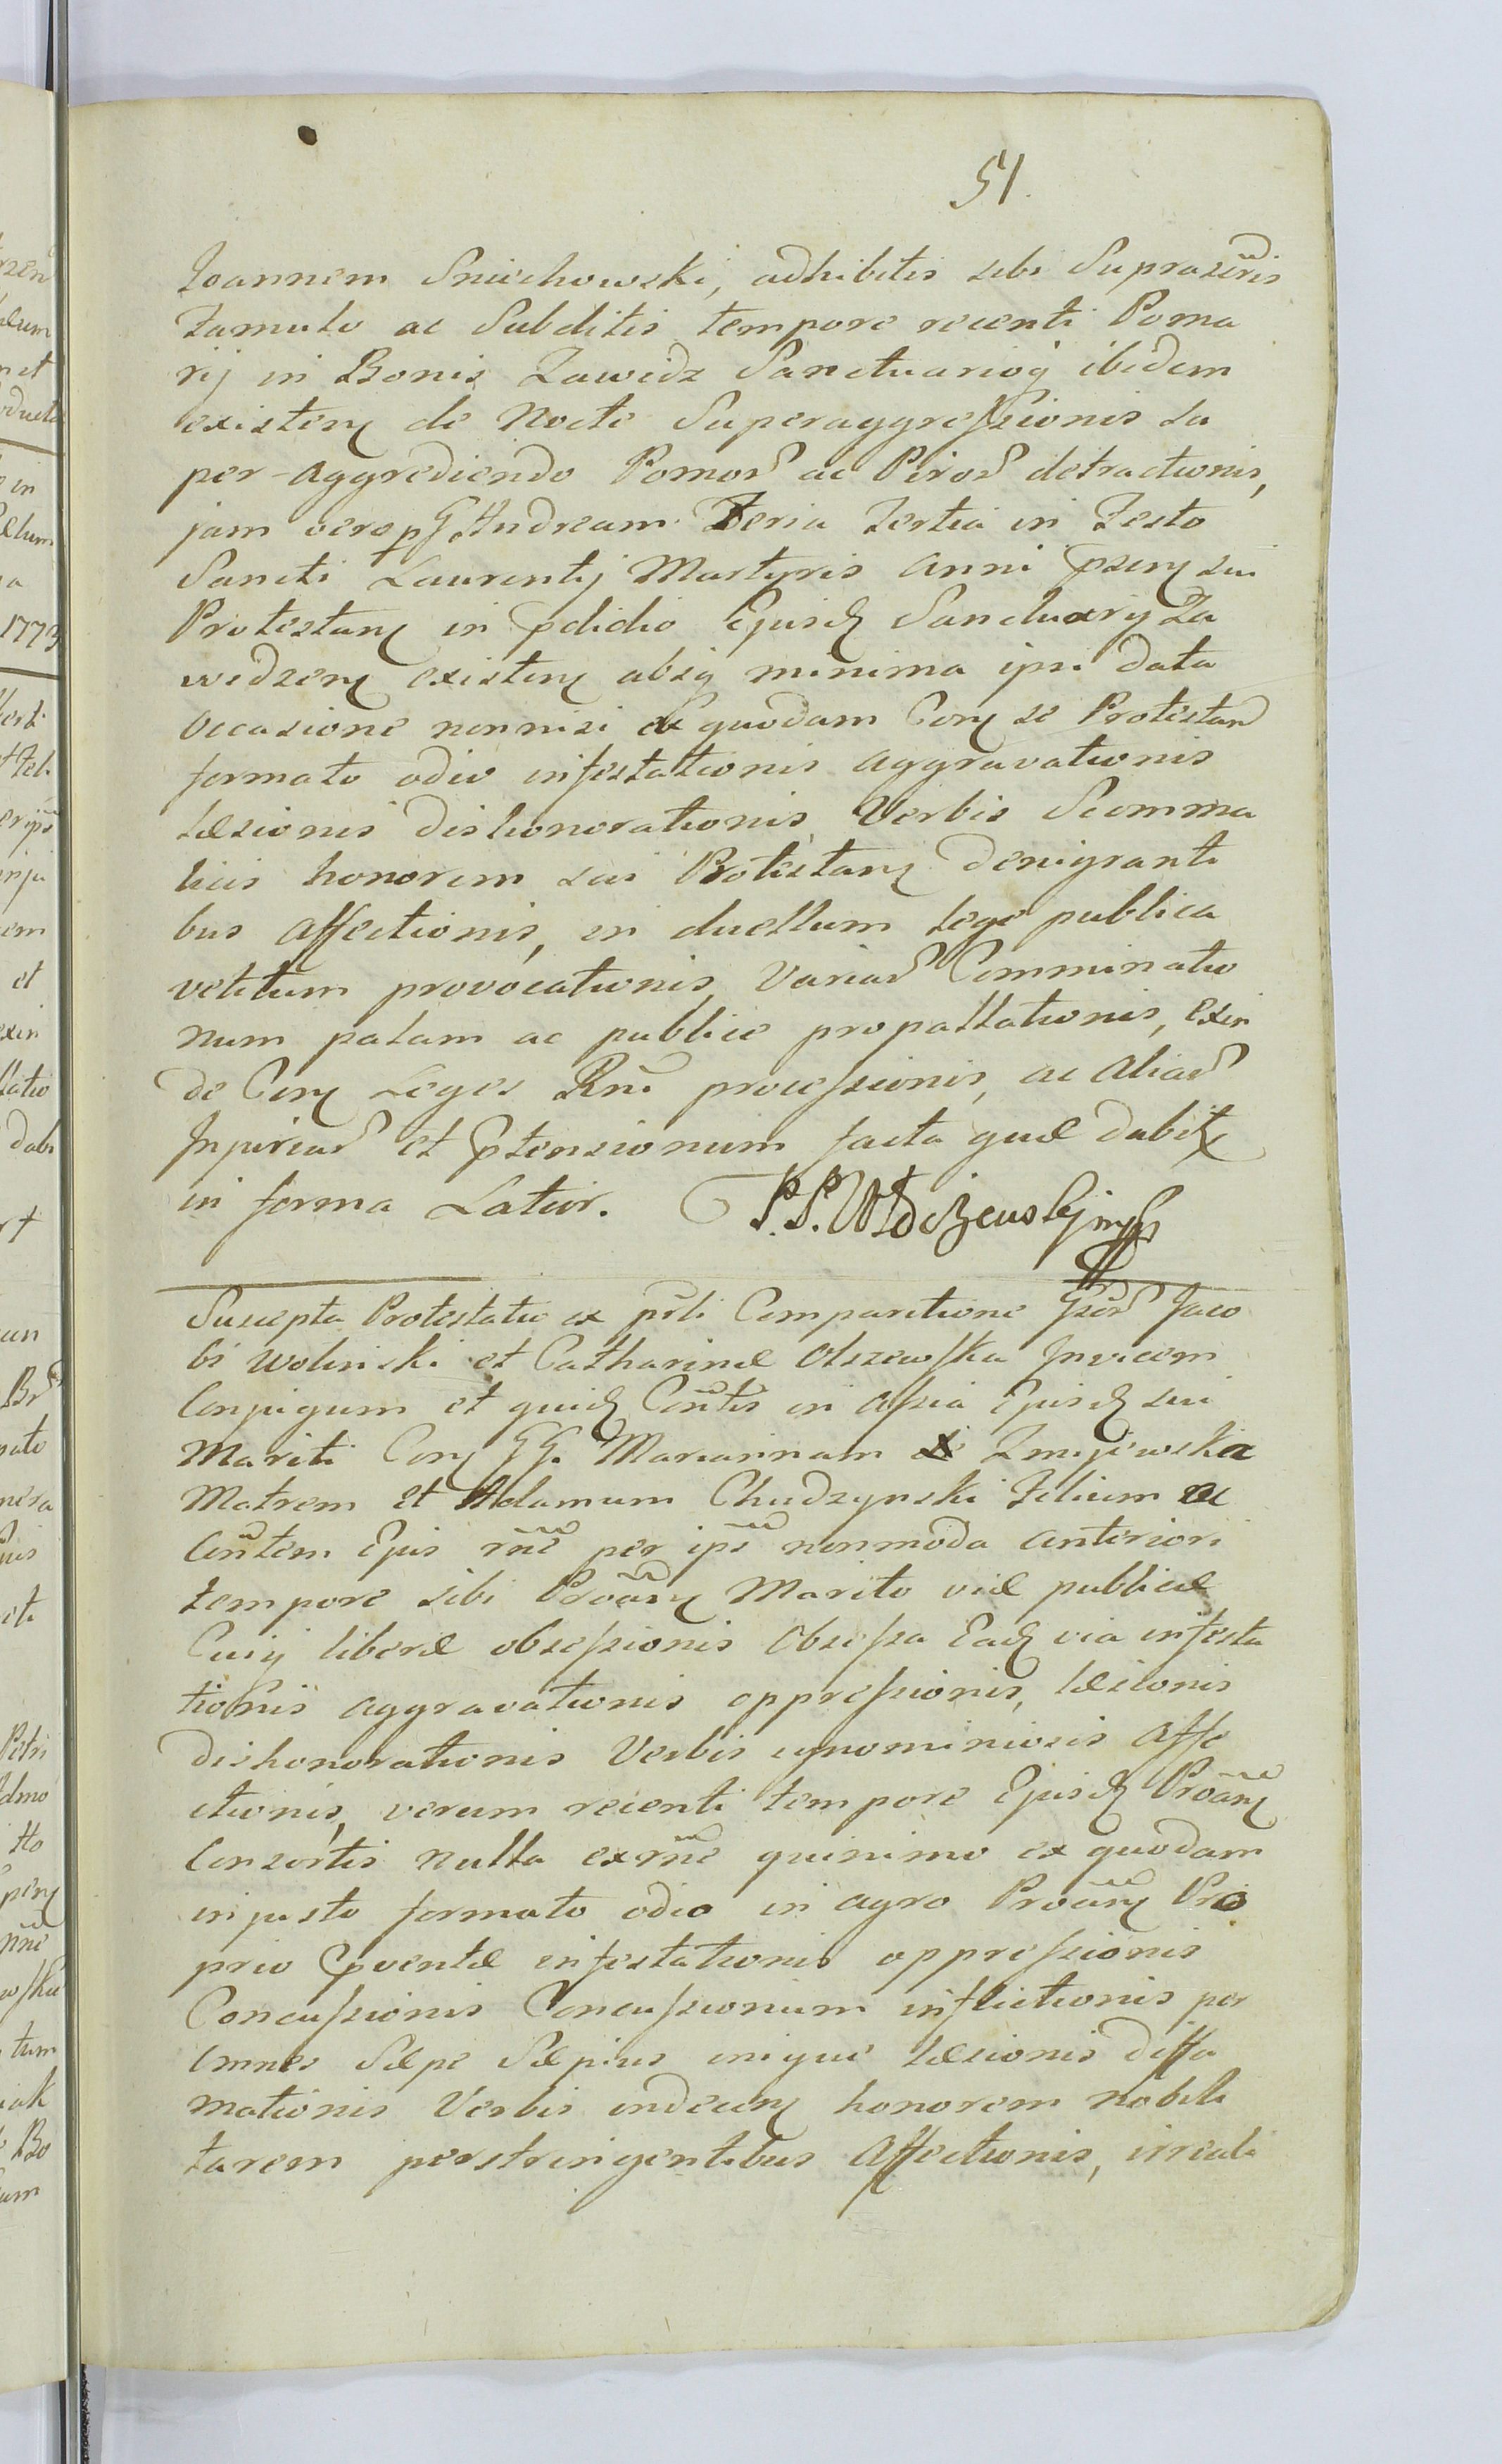 51.
Joannem Sniechowski, adhibitis sibi Suprascr̃is
Famulo ac Subditis tempore recenti Poma
rij in Bonis Zawidz Sanctuarioq̃ ibidem
existen̄ de Nocte Superaggressionis su
per-aggrediendo Pomor̃ ac Piror̃ detractionis,
jam vero p G. Andream Feria Tertia in Festo
Sancti Laurentij Martyris Anni p̃sen̄ sui
Protestan̄ in p̃didio Ejusd̃ Sanctuarij Za
widzen̄ existen̄ absq̃ minima ipsi data
occasione nonnisi ex quodam Con̄ se Protestan̄
formato odio infestationis aggravationis
Læsionis dishonorationis Verbis Scomma
ticis honorem sui Protestan̄ denigranti
bus affectionis, in duellum Lege publica
vetitum provocationis, Variar̃ Comminatio
num palam ac publice propallationis, Exin
de Con̄ Leges Rn̄i processionis, ac Aliar̃
Injuriar̃ et P̃tensionum facta quæ dabitr̃
in forma Latior.
Suscepta Protestatio ex p̃nli Comparitione Gñor̃ Jaco
bi Wolinski et Catharinæ Olszewska Invicem
Conjugum et quid̃ Coñtis in Assia Ejusd̃ sui
Mariti Con̄ GG. Mariannam de Zmijewska
Matrem et Adamum Chudzynski Filium ac
Coñtem Ejus rñe per ips̃ nonmodo anteriori
tempore sibi Proãn̄ Marito viæ publicæ
Cuiq̃ liberæ obsessionis Obsessa Ead̃ via infesta
tionis aggravationis oppressionis, læsionis
dishonorationis Verbis ignominiosis Affe
ctionis, verum recenti tempore Ejusd̃ Proãn̄
Consortis nulla ex rñe quinimo ex quodam
injusto formato odio in agro Proãn̄ Pro
prio P̃ventæ infestationis oppressionis
Concussionis Concussionum inflictionis per
Omnes Sæpe Sæpius inique læsionis diffa
mationis Verbis indecen̄ honorem nobili
tarem perstringentibus Affectionis, irreali